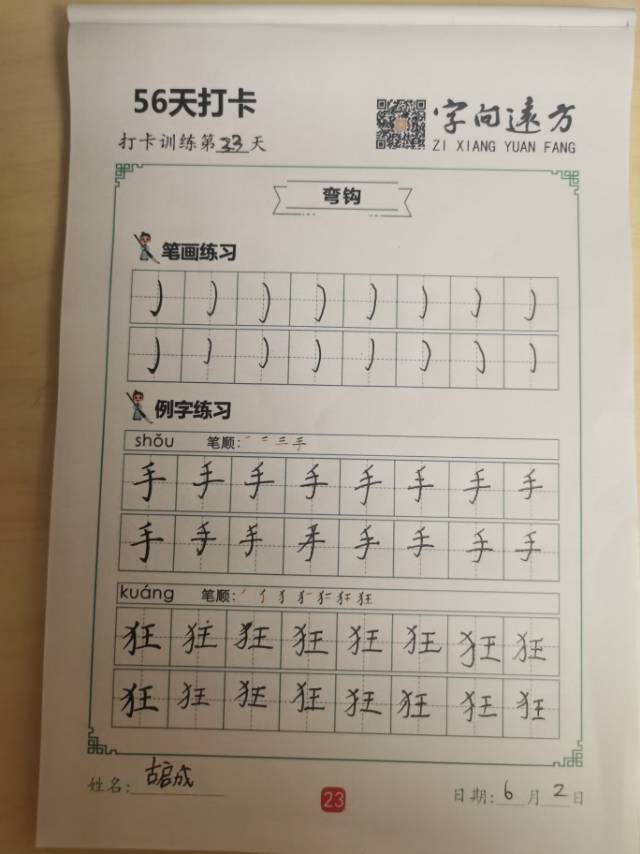 56天打卡
字向远方
打卡训练第23天
ZI XIANG YUAN FANG
弯钩
笔画练习
例字练习
shǒu 笔顺:
手手手手手手手手
手手手手手手手手
kuáng 笔顺:
狂狂狂狂狂狂狂狂
狂狂狂狂狂狂狂狂
姓名:古启成
23
日期:6月2日